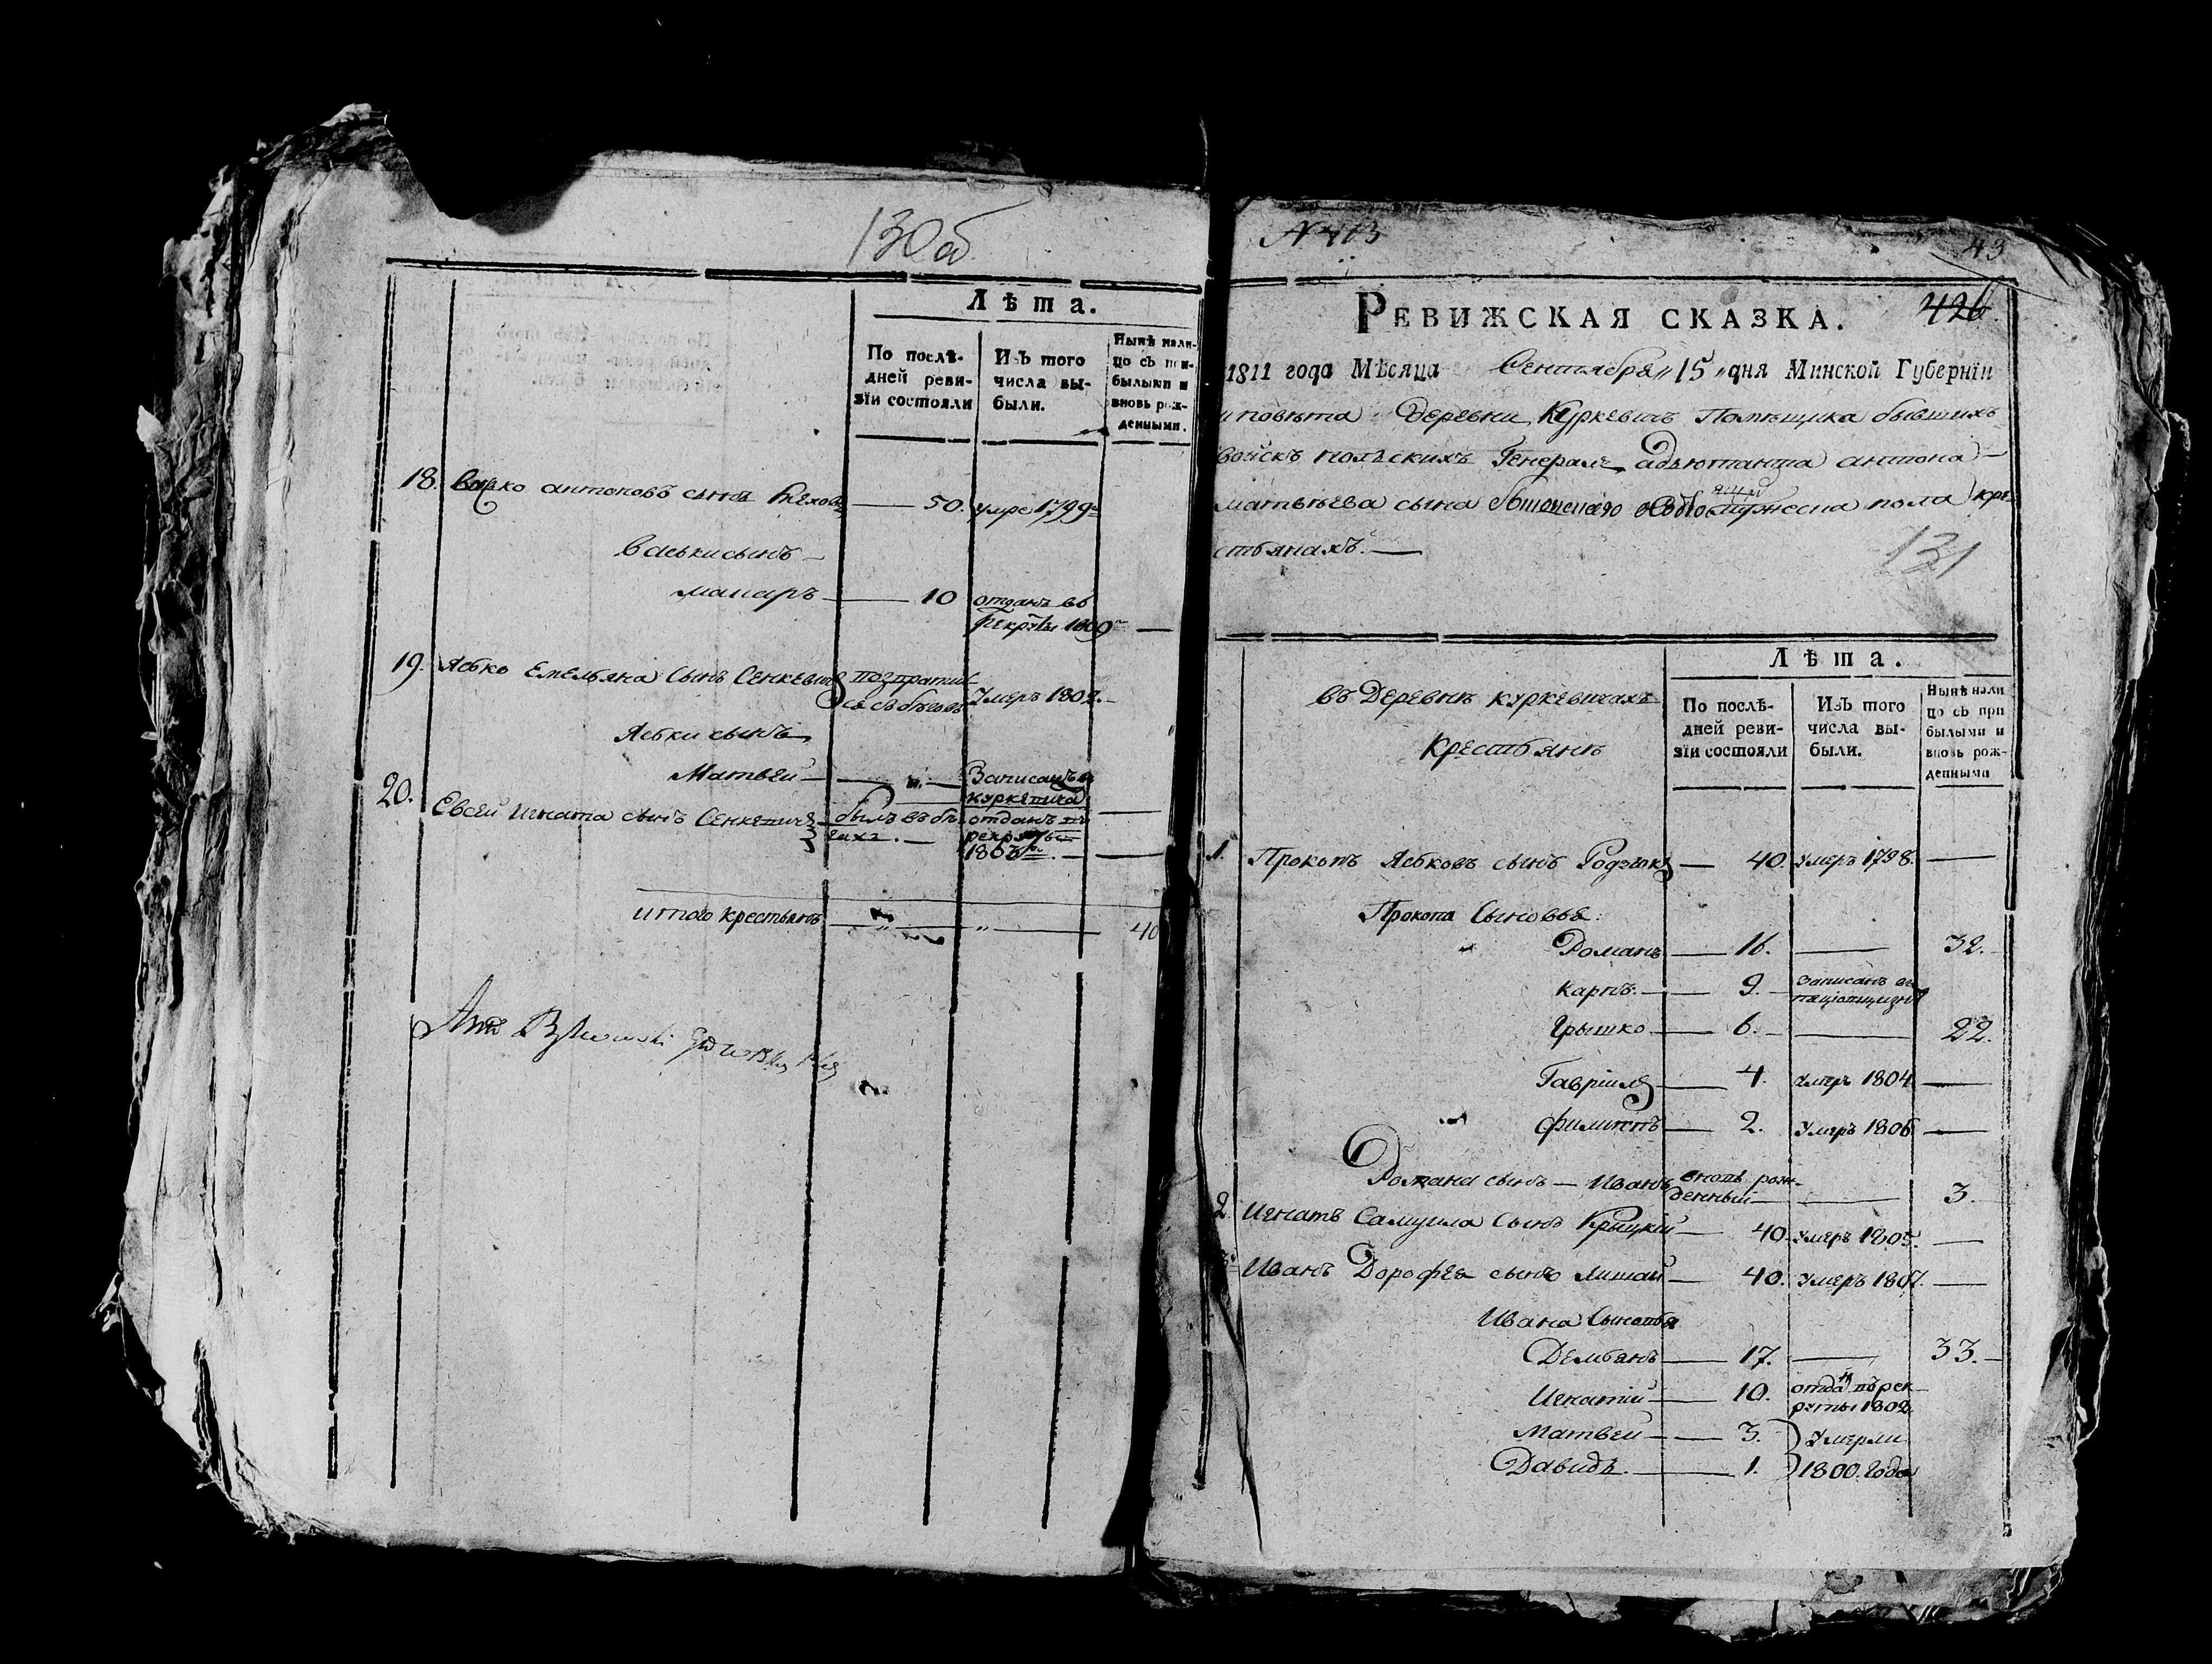 130об.
Лѣта.
По послѣдней ревизіи состояли
Изъ того числа выбыли.
Нынѣ налицо съ прибылыми и вновь рожденными.
18. Васко антоновъ сынъ — 50. умре 1799
Васьки сынъ —
Макаръ — 10 отданъ въ
рекруты 1809 —
19. Ясько Емельяна Сынъ Сенкевичъ
съ бѣговъ Умеръ 1802. —
Яськи сынъ
Матвей — „ — Записанъ в
20. Евсей Игната сынъ Сенкевичъ — былъ въ бѣ- отданъ въ
гахъ. — рекруты
итого крестьянъ — „ — „ — 40
N 413
43
РЕВИЖСКАЯ СКАЗКА. 426
1811 года Мѣсяца Сентября „15 „дня Минской Губерніи
повѣта Деревни Куркевичъ Помѣщика бывшихъ
войскъ польскихъ Генералъ адъютанта антона
матвѣева сына о мужеска пола кре-
стьянахъ. —
131
въ Деревнѣ куркевичахъ
Крестьянъ
Лѣта.
По послѣдней ревизіи состояли
Изъ того числа выбыли.
Нынѣ нали цо съ при былыми и вновь рожденными
1. Прокопъ Яськовъ сынъ — 40. умеръ 1798. —
Прокопа Сыновья:
Романъ — 16. — 32. —
Карпъ. — 9. — записанъ въ
Грышко — 6. — 22.
Гавріилъ — 4. умеръ 1804 —
Филиппъ — 2. Умеръ 1806 —
Романа сынъ — Иванъ вновь рож-
денный — 3.
2. Игнатъ Самуила Сынъ Крыцкій — 40. умеръ 1805. —
3. Иванъ Дорофея сынъ Лишай — 40. Умеръ 1807. —
Ивана Сыновья
Демьянъ — 17. — 33. —
Игнатій — 10. отданъ въ рек-
руты 1802
Матвей — 3. Умерли
Давидъ. — 1. 1800. года